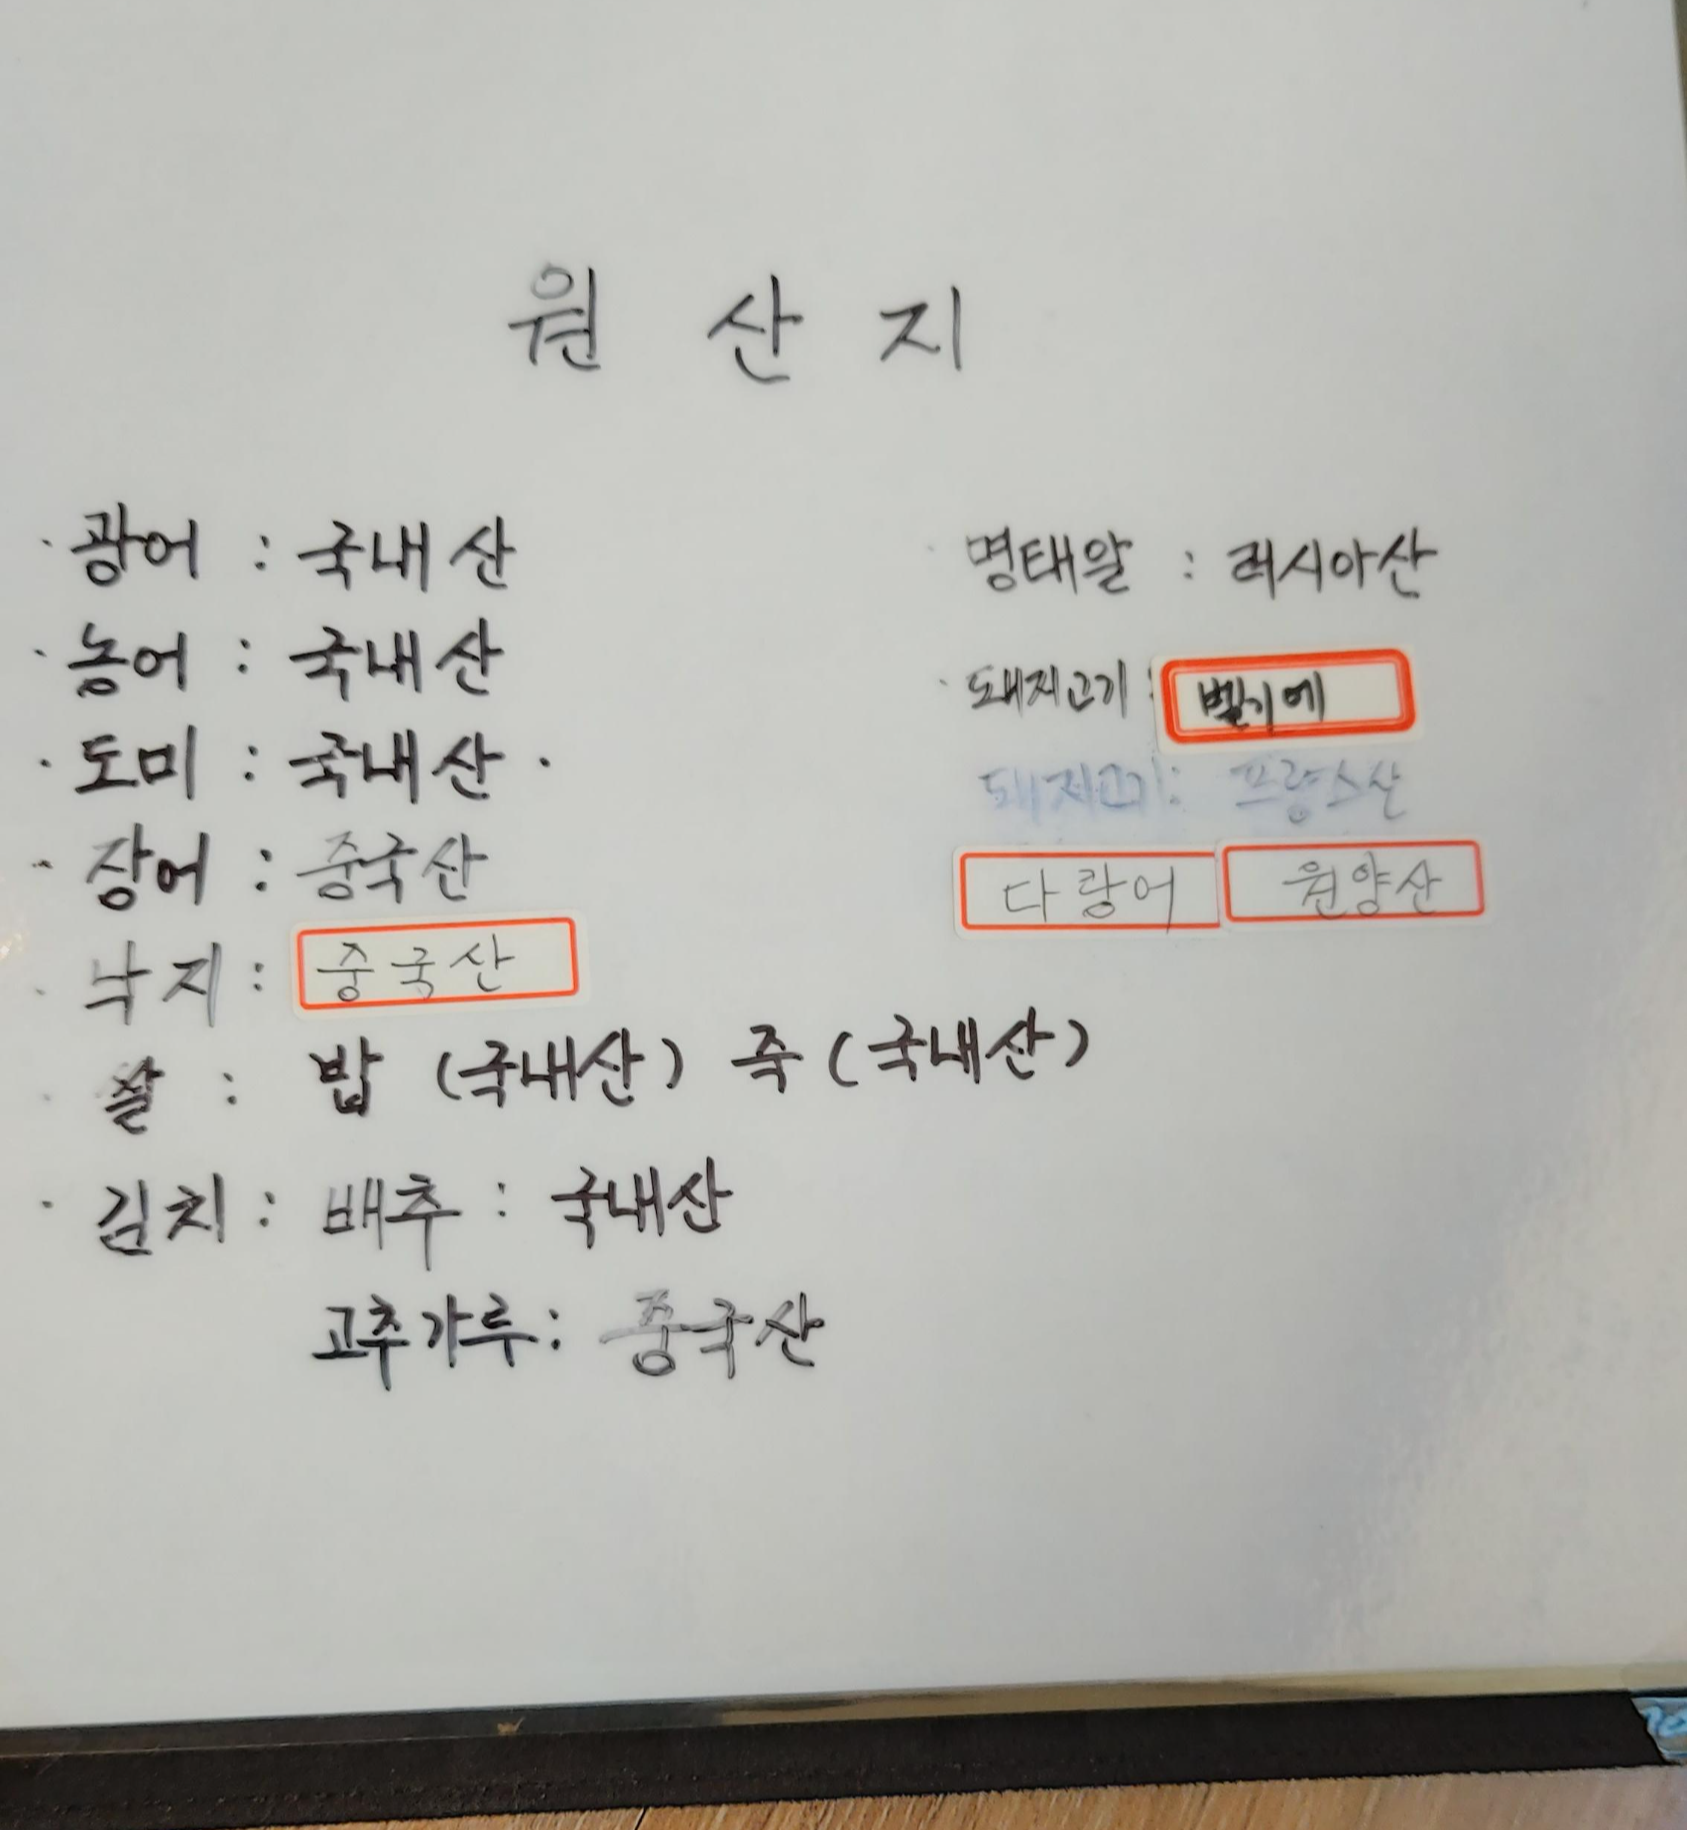 원 산 지
· 광어 : 국내산
· 농어 : 국내산
· 도미 : 국내산 ·
· 장어 : 중국산
· 낙지 : 중국산
· 쌀 : 밥 (국내산) 죽 (국내산)
· 김치 : 배추 : 국내산
고추가루 : 중국산
· 명태알 : 러시아산
· 돼지고기 : 벨기에
돼지고기 : 프랑스산
다랑어 원양산